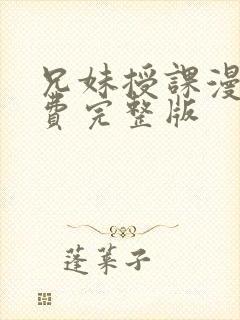 兄妹授課漫
費完整版
蓬莱子